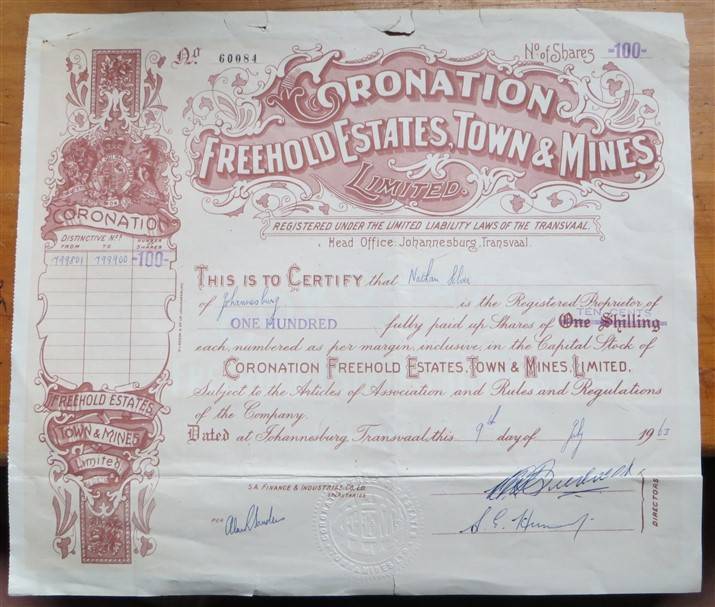 Nº 60084
Nº of Shares -100-
CORONATION
FREEHOLD ESTATES, TOWN & MINES.
LIMITED.
REGISTERED UNDER THE LIMITED LIABILITY LAWS OF THE TRANSVAAL.
Head Office. Johannesburg, Transvaal.
CORONATION
DISTINCTIVE Nºs NUMBER
FROM TO SHARES
799801 799900 -100-
FREEHOLD ESTATES
TOWN & MINES
Limited
THIS IS TO CERTIFY that Nathan Silver
of Johannesburg is the Registered Proprietor of
ONE HUNDRED fully paid up Shares of One Shilling
TEN CENTS
each, numbered as per margin, inclusive, in the Capital Stock of
CORONATION FREEHOLD ESTATES, TOWN & MINES, LIMITED.
Subject to the Articles of Association and Rules and Regulations
of the Company.
Dated at Johannesburg Transvaal, this 9th day of July 1963
S.A. FINANCE & INDUSTRIES CO. LD.
SECRETARIES
PER
DIRECTORS